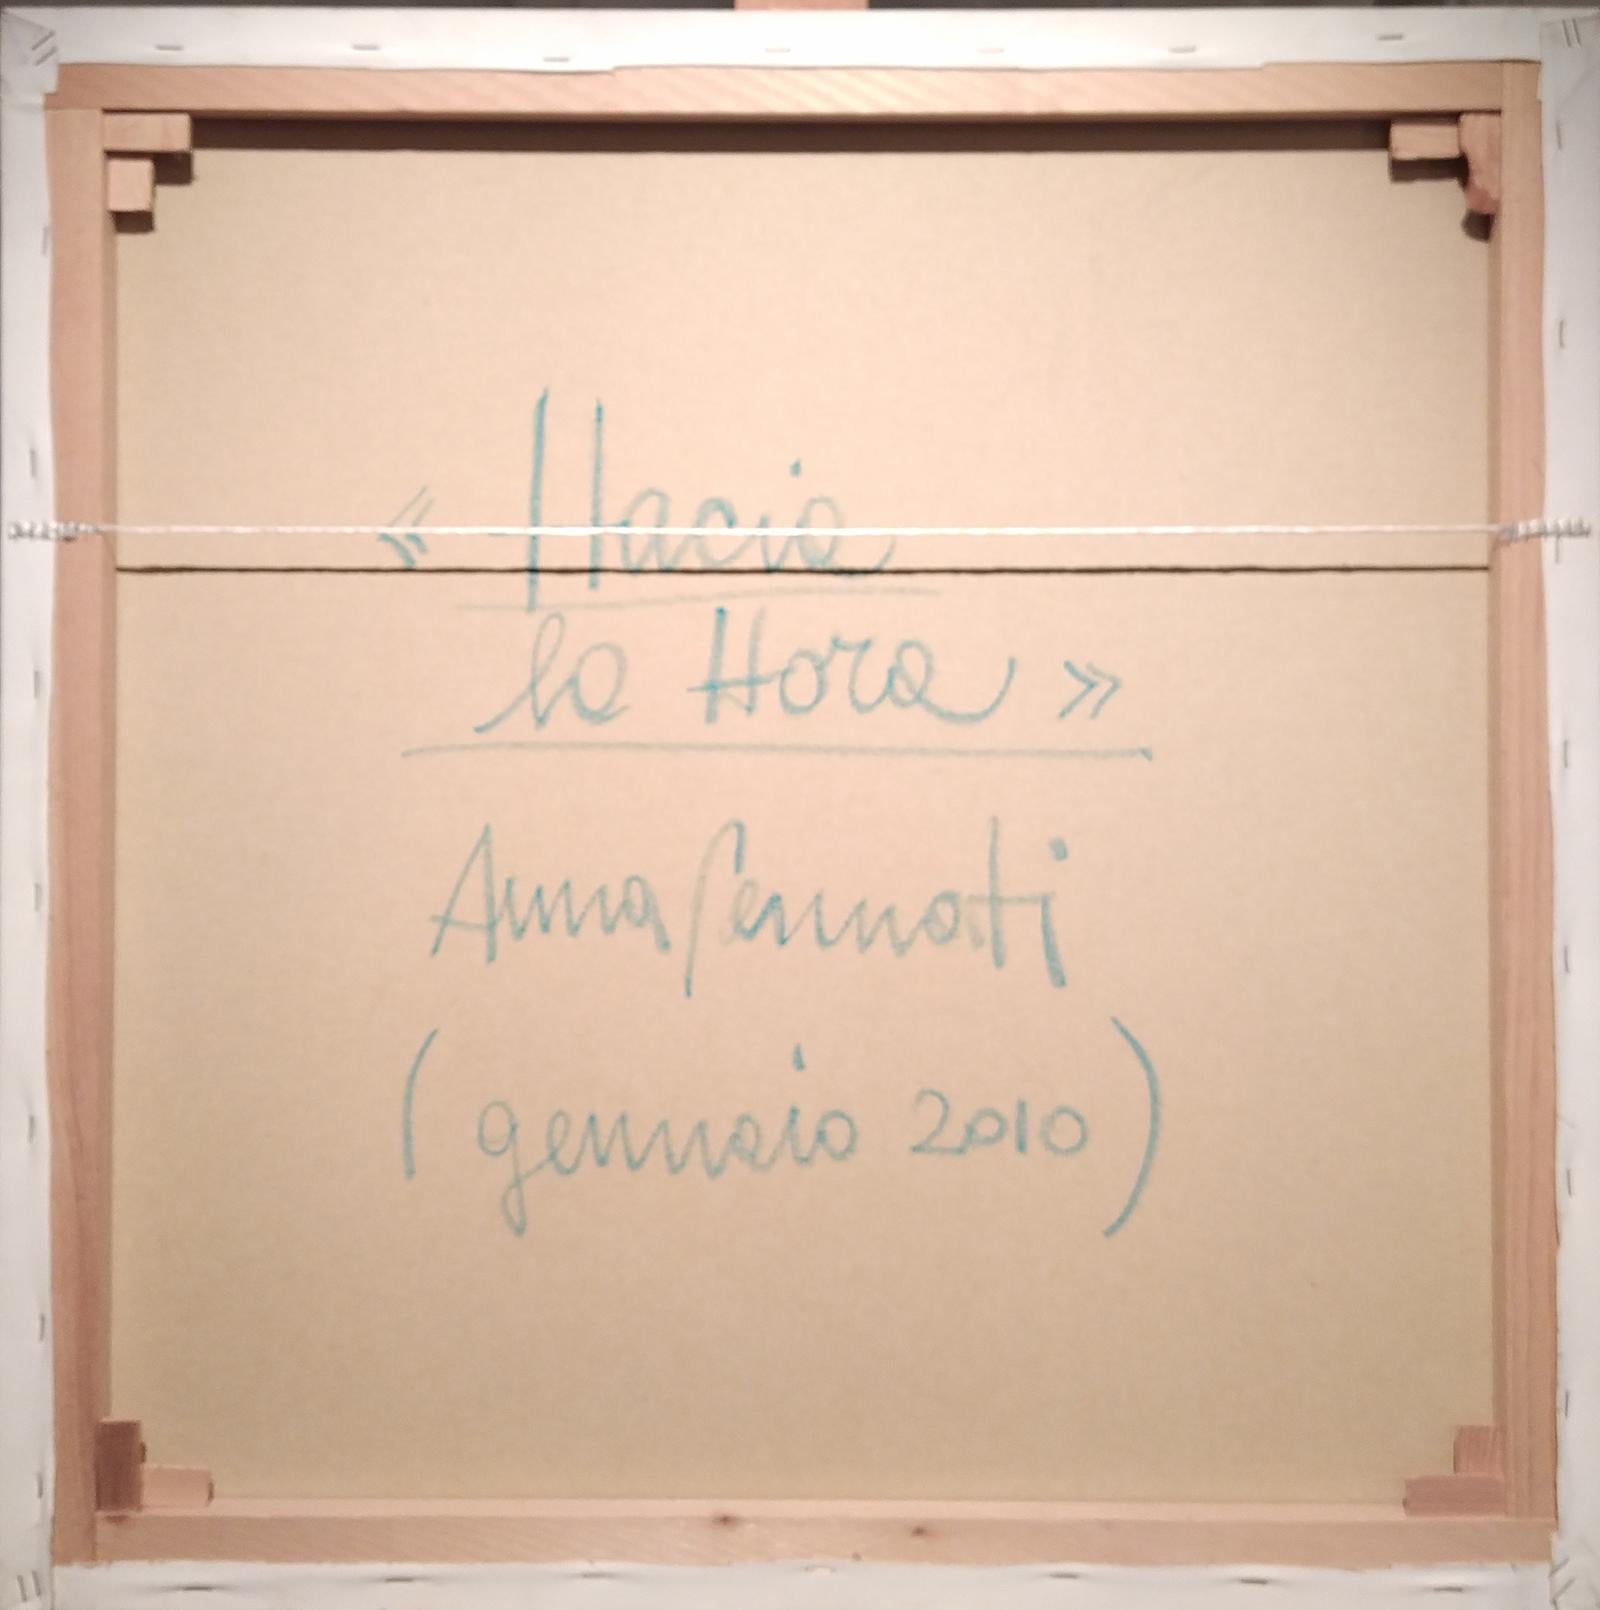 « Hacia
la Hora »
Anna Pennati
(gennaio 2010)